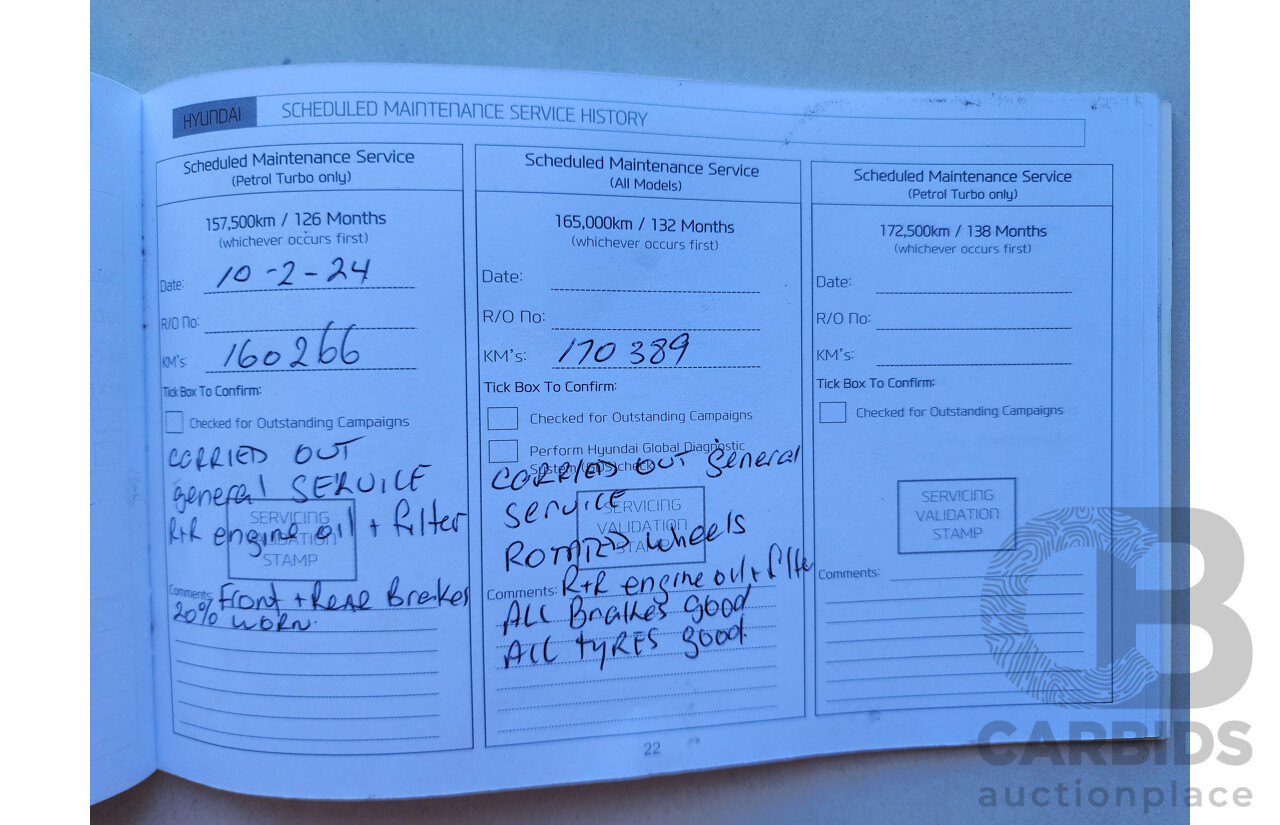 HYUNDAI SCHEDULED MAINTENANCE SERVICE HISTORY
Scheduled Maintenance Service
(Petrol Turbo only)
157,500km / 126 Months
(whichever occurs first)
Date: 10-2-24
R/O No:
KM's: 160266
Tick Box To Confirm:
Checked for Outstanding Campaigns
CARRIED OUT
general SERVICE
R+R engine oil + filter
SERVICING
VALIDATION
STAMP
Comments: Front + Rear Brakes
20% WORN.
Scheduled Maintenance Service
(All Models)
165,000km / 132 Months
(whichever occurs first)
Date:
R/O No:
KM's: 170389
Tick Box To Confirm:
Checked for Outstanding Campaigns
Perform Hyundai Global Diagnostic
System (GDS) check
CARRIED OUT general
Service
ROTATED wheels
SERVICING
VALIDATION
STAMP
Comments: R+R engine oil + filte
ALL Brakes good
ALL tyRES good.
Scheduled Maintenance Service
(Petrol Turbo only)
172,500km / 138 Months
(whichever occurs first)
Date:
R/O No:
KM's:
Tick Box To Confirm:
Checked for Outstanding Campaigns
SERVICING
VALIDATION
STAMP
Comments:
22
CB
CARBIDS
auctionplace